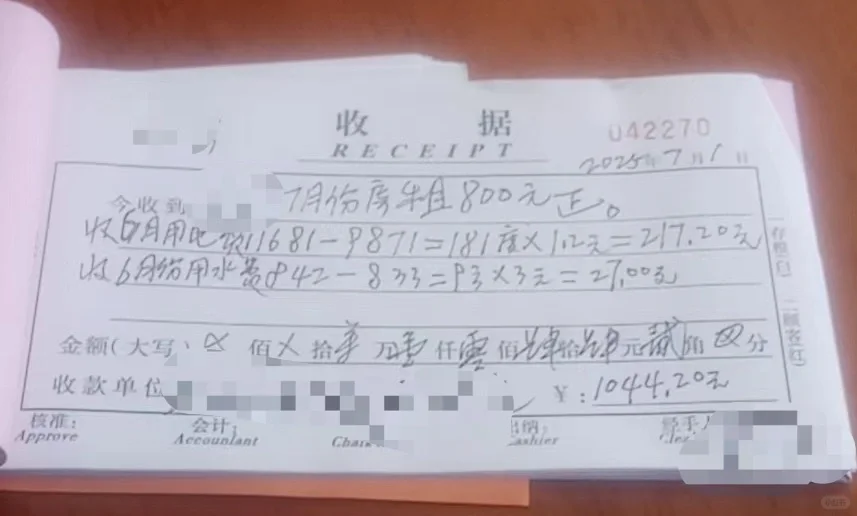 收 据
RECEIPT
042270
2025年7月1日
今收到 7月份房租800元正。
收6月用电费11681-9871=181度×1.2元=217.20元
收6月份用水费842-833=9方×3元=27.00元
金额(大写) 佰 拾 万壹仟零佰肆拾肆元贰角 分
收款单位 ¥:1044.20元
存根(白) 二顾客(红)
核准: 会计: 出纳: 经手人
Approve Accountant Cashier